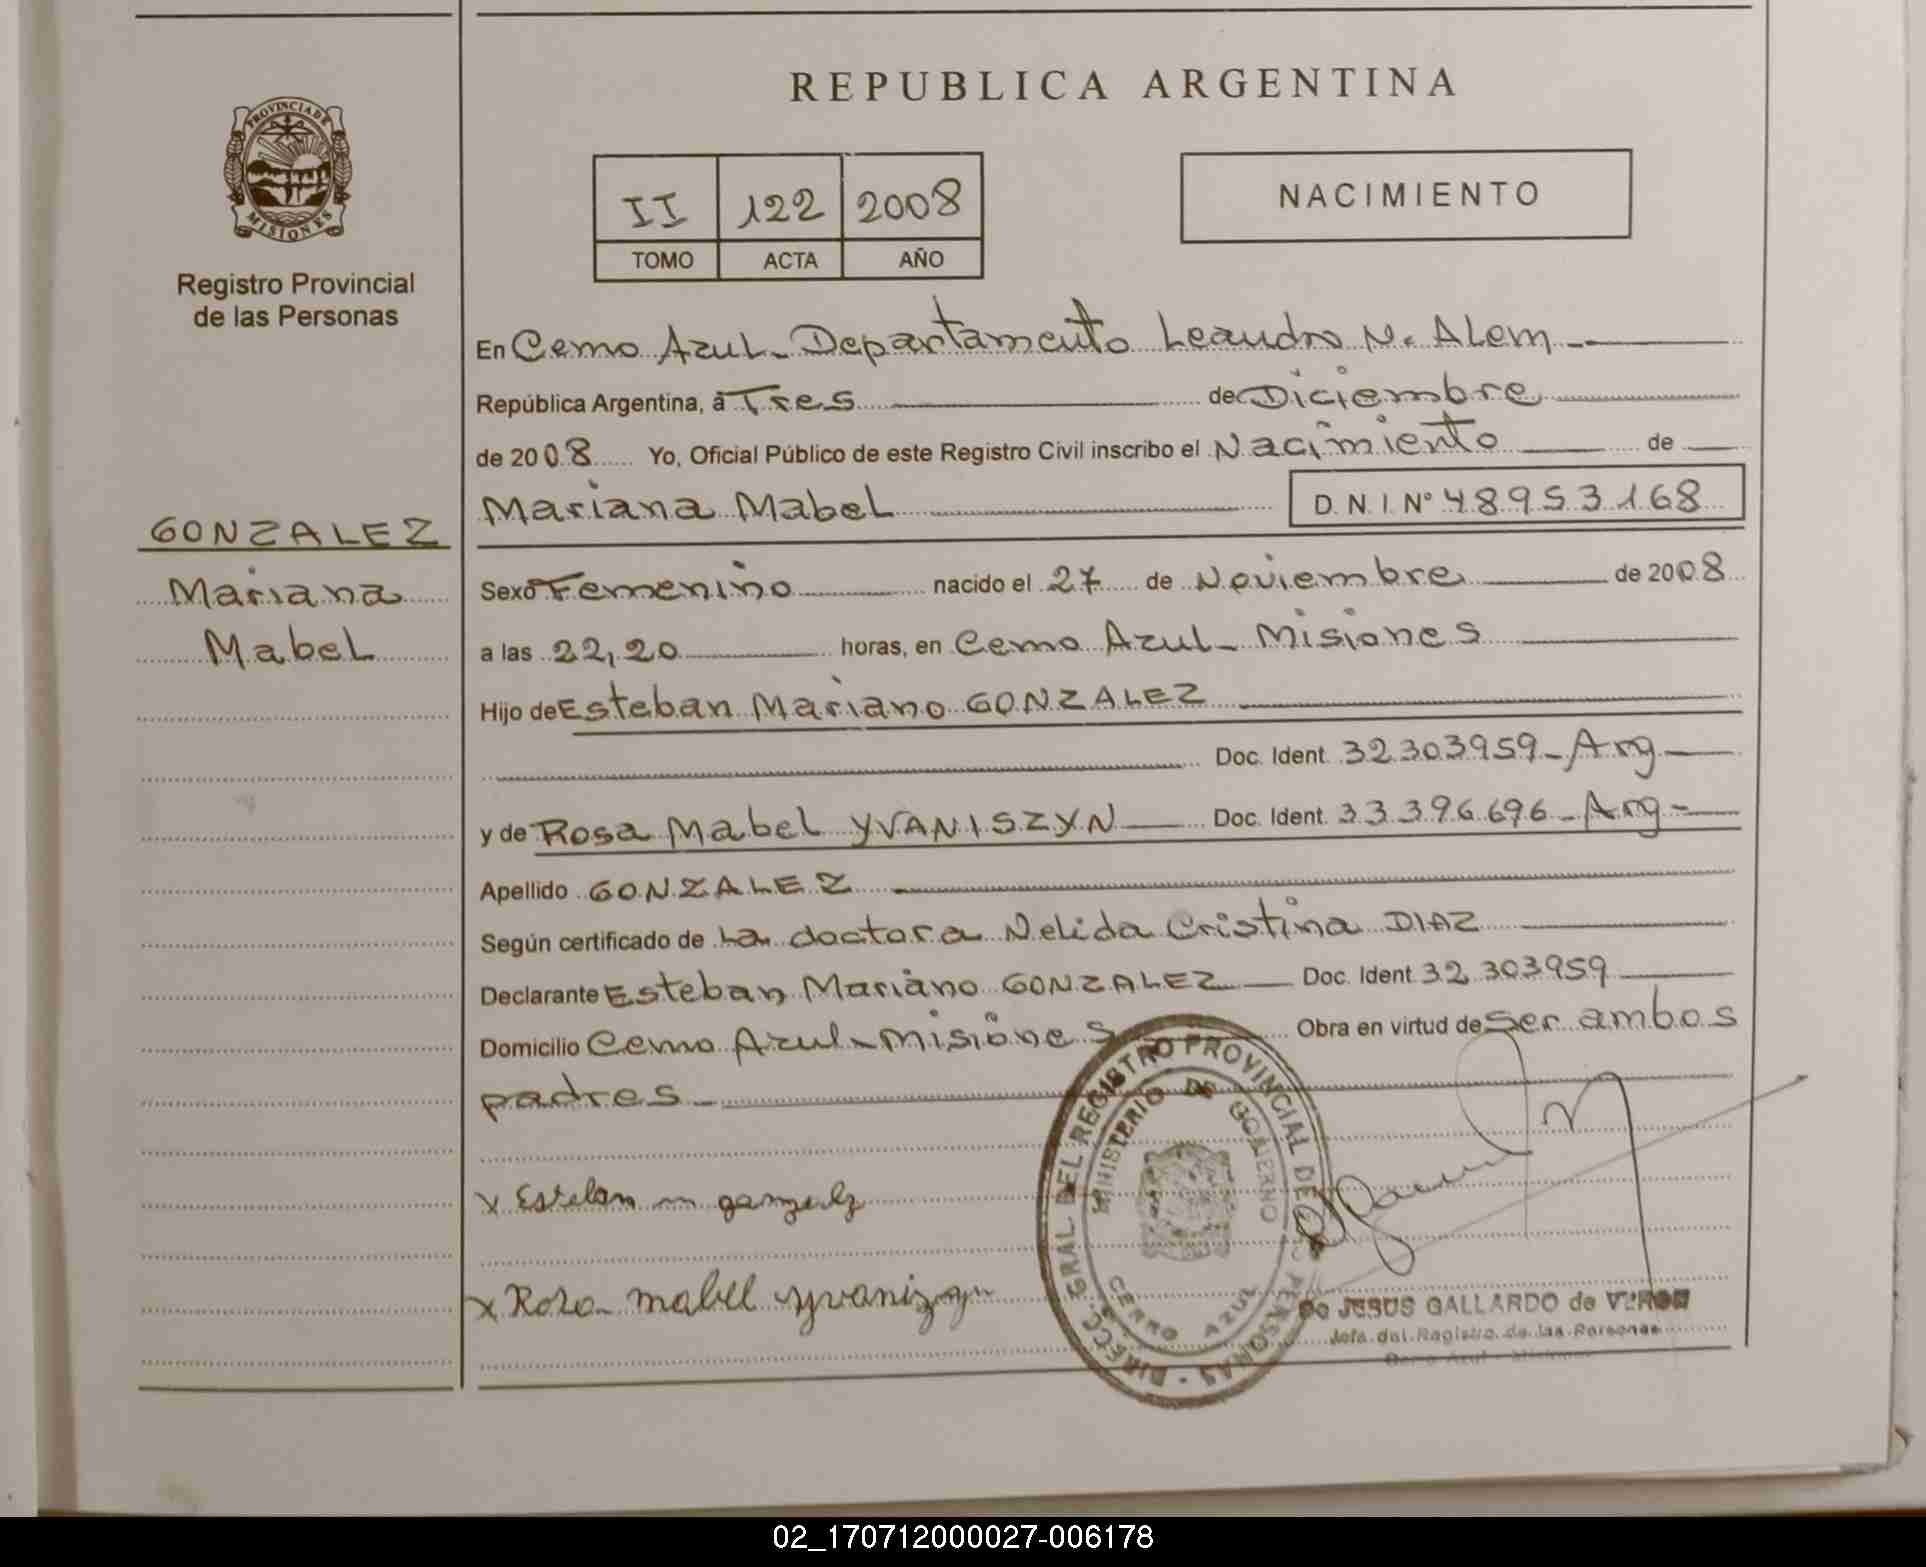 REPUBLICA ARGENTINA
PROVINCIA DE
MISIONES
Registro Provincial
de las Personas
II 122 2008
TOMO ACTA AÑO
NACIMIENTO
GONZALEZ
Mariana
Mabel
En Cerro Azul - Departamento Leandro N. Alem -
República Argentina, a Tres de Diciembre
de 2008 Yo, Oficial Público de este Registro Civil inscribo el Nacimiento de
Mariana Mabel D.N.I. Nº 48953168
Sexo Femenino nacido el 27 de Noviembre de 2008
a las 22,20 horas, en Cerro Azul - Misiones
Hijo de Esteban Mariano GONZALEZ
Doc. Ident. 32303959 - Arg -
y de Rosa Mabel YVANISZYN Doc. Ident. 33.396.696 - Arg -
Apellido GONZALEZ
Según certificado de La doctora Nelida Cristina DIAZ
Declarante Esteban Mariano GONZALEZ Doc. Ident. 32303959
Domicilio Cerro Azul - Misiones Obra en virtud de Ser ambos
padres -
x Esteban m gonzalz
x Rosa mabel yvaniszyn
DIRECC. GRAL. DEL REGISTRO PROVINCIAL DE LAS PERSONAS
MINISTERIO DE GOBIERNO
CERRO AZUL
JESUS GALLARDO de
Jefa del Registro de las Personas
Cerro Azul - Misiones
02_170712000027-006178